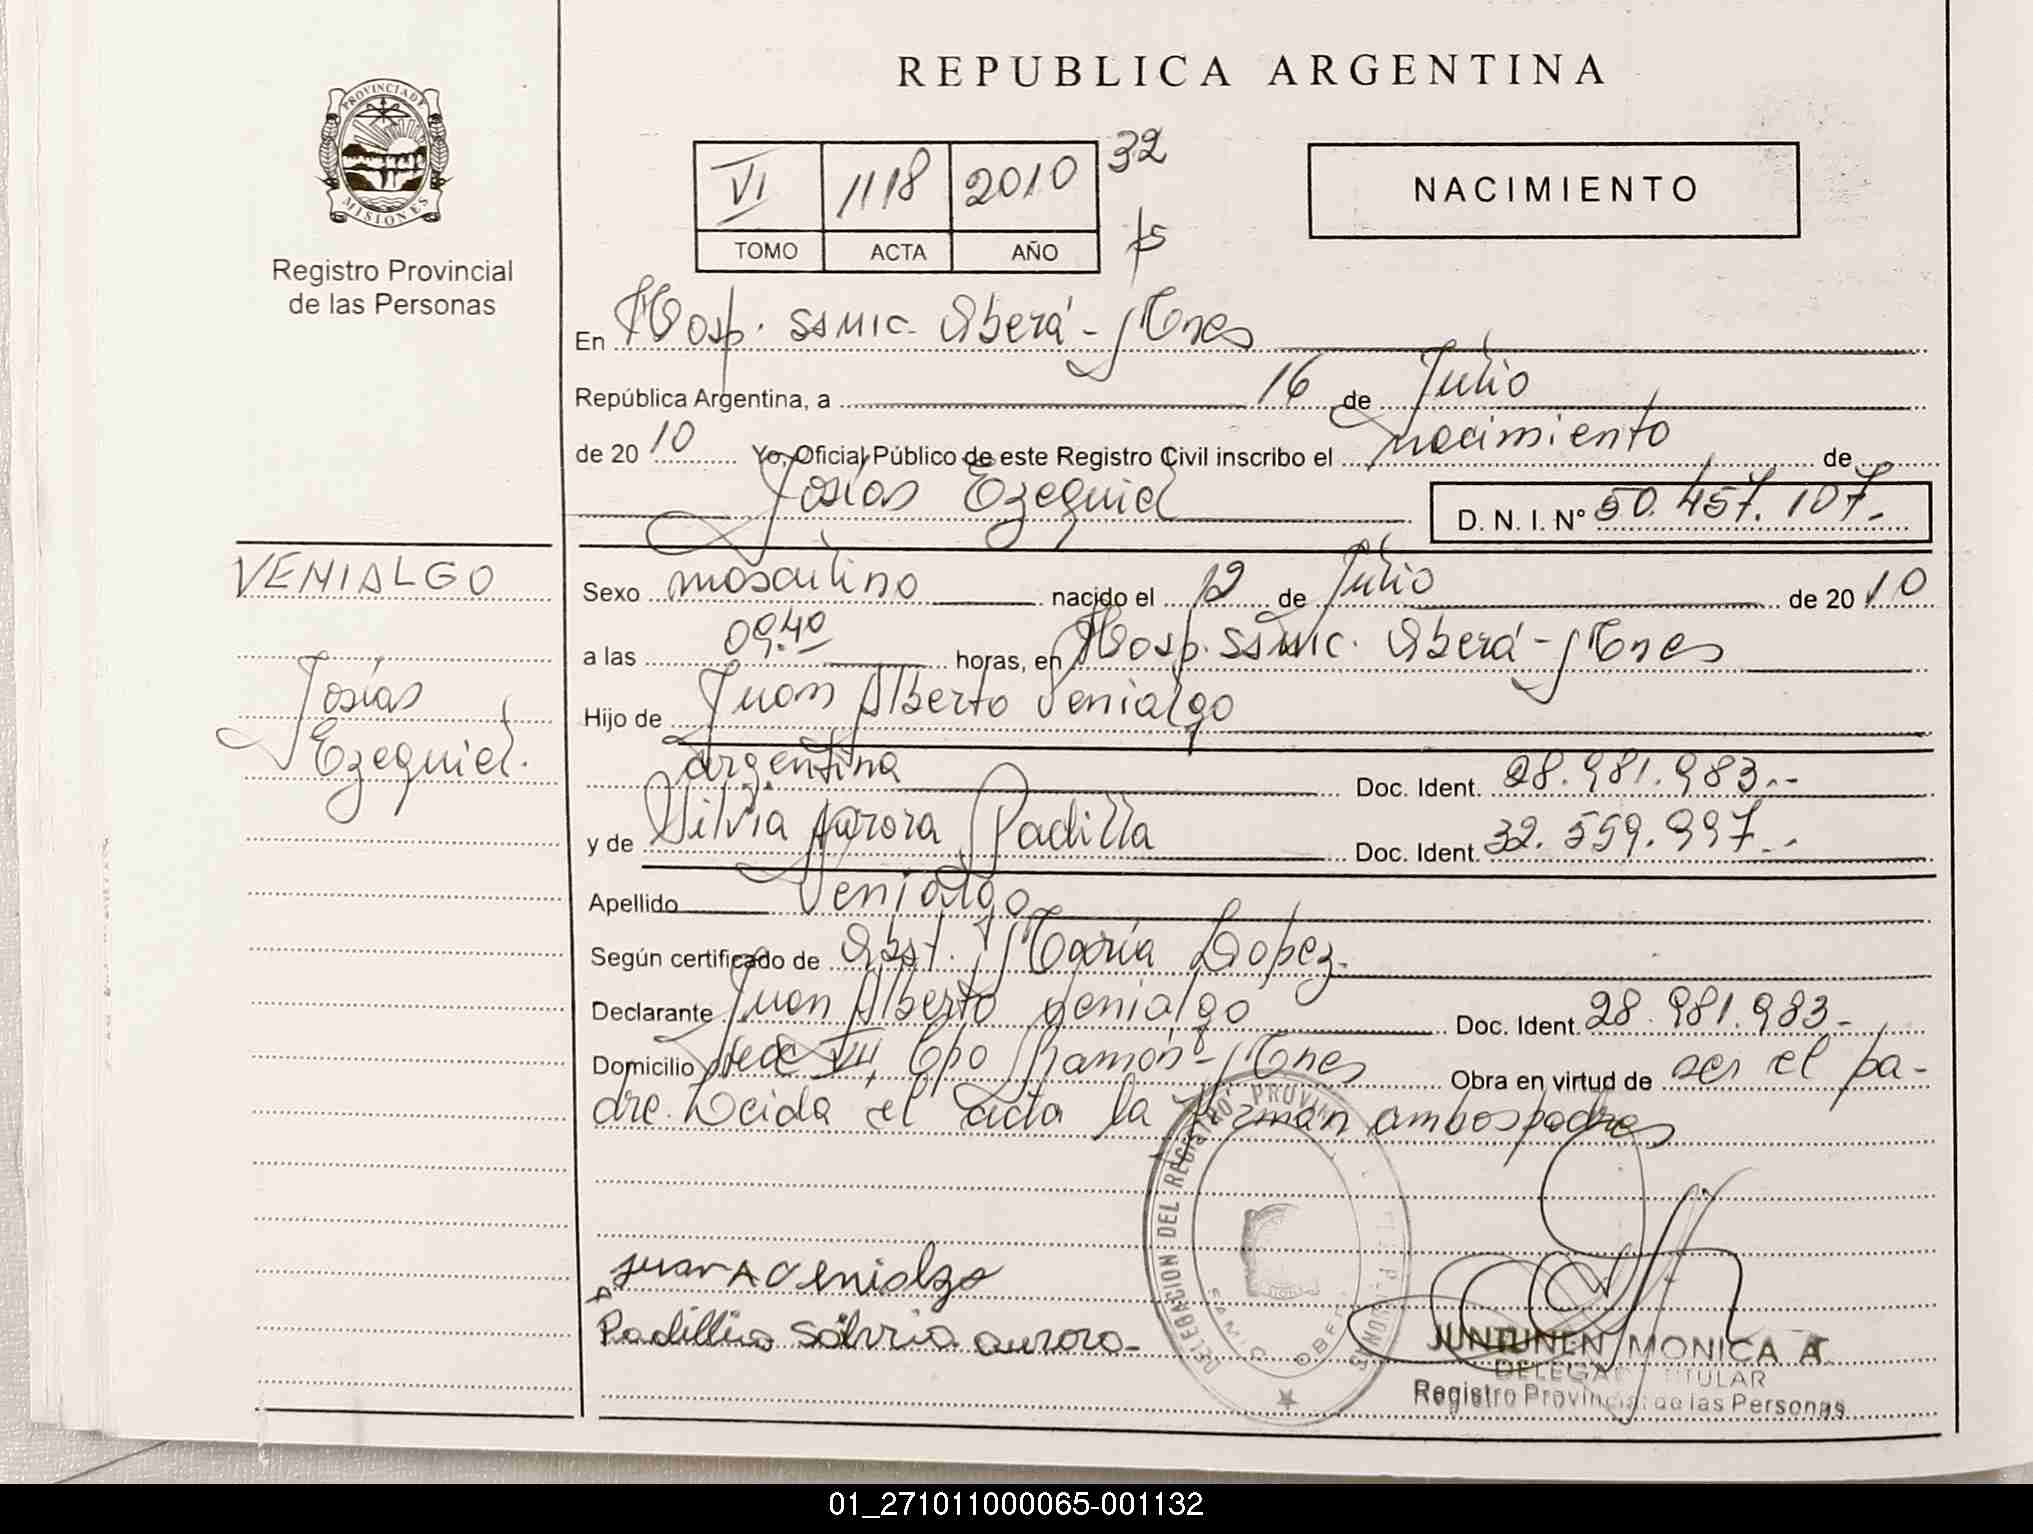 PROVINCIA DE
MISIONES
Registro Provincial
de las Personas
REPUBLICA ARGENTINA
VI 1118 2010 32
TOMO ACTA AÑO
NACIMIENTO
En Hosp. SAMIC. Oberá - Mnes
República Argentina, a 16 de Julio
de 2010 Yo, Oficial Público de este Registro Civil inscribo el nacimiento de
Josías Ezequiel D. N. I. Nº 50.457.107.-
VENIALGO
Josías
Ezequiel.
Sexo masculino nacido el 12 de Julio de 2010
a las 09:40 horas, en Hosp. SAMIC. Oberá - Mnes
Hijo de Juan Alberto Venialgo
argentina Doc. Ident. 28.981.983.--
y de Silvia Aurora Padilla Doc. Ident. 32.559.997.--
Apellido Venialgo
Según certificado de Obst. María Lopez.
Declarante Juan Alberto Venialgo Doc. Ident. 28.981.983-
Domicilio VII, Cpo Ramón - Mnes Obra en virtud de ser el pa-
dre. Leida el acta la firman ambos padres
Juan A Venialgo
Padilla Silvia aurora.
DELEGACION DEL REGISTRO PROVIN
SAMIC OBE
JUNTUNEN MONICA A.
DELEGA TITULAR
Registro Provincial de las Personas
01_271011000065-001132